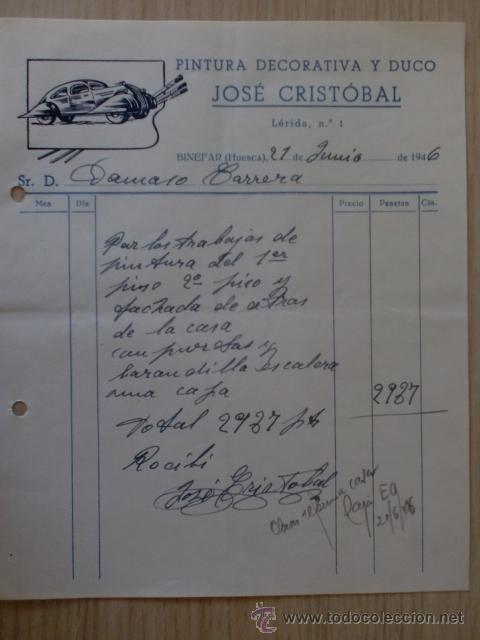 PINTURA DECORATIVA Y DUCO
JOSÉ CRISTÓBAL
Lérida, n.º 1
BINEFAR (Huesca), 21 de Junio de 1946
Sr. D. Damaso Carrera
Mes Día Precio Pesetas Cts.
Por los trabajos de
pintura del 1er
piso 2º piso y
fachada de atras
de la casa
con puertas y
barandilla escalera
una capa 2927
Total 2927 pts
Recibi
José Cristobal
Obras casa
EG
21/6/46
todocoleccion
www.todocoleccion.net